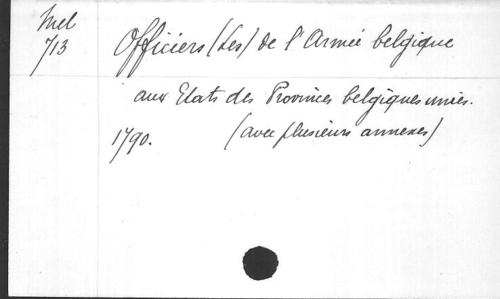 Mel
713
Officiers (Les) de l'Armée belgique
aux Etats des Provinces belgiques unies.
1790. (avec plusieurs annexes)